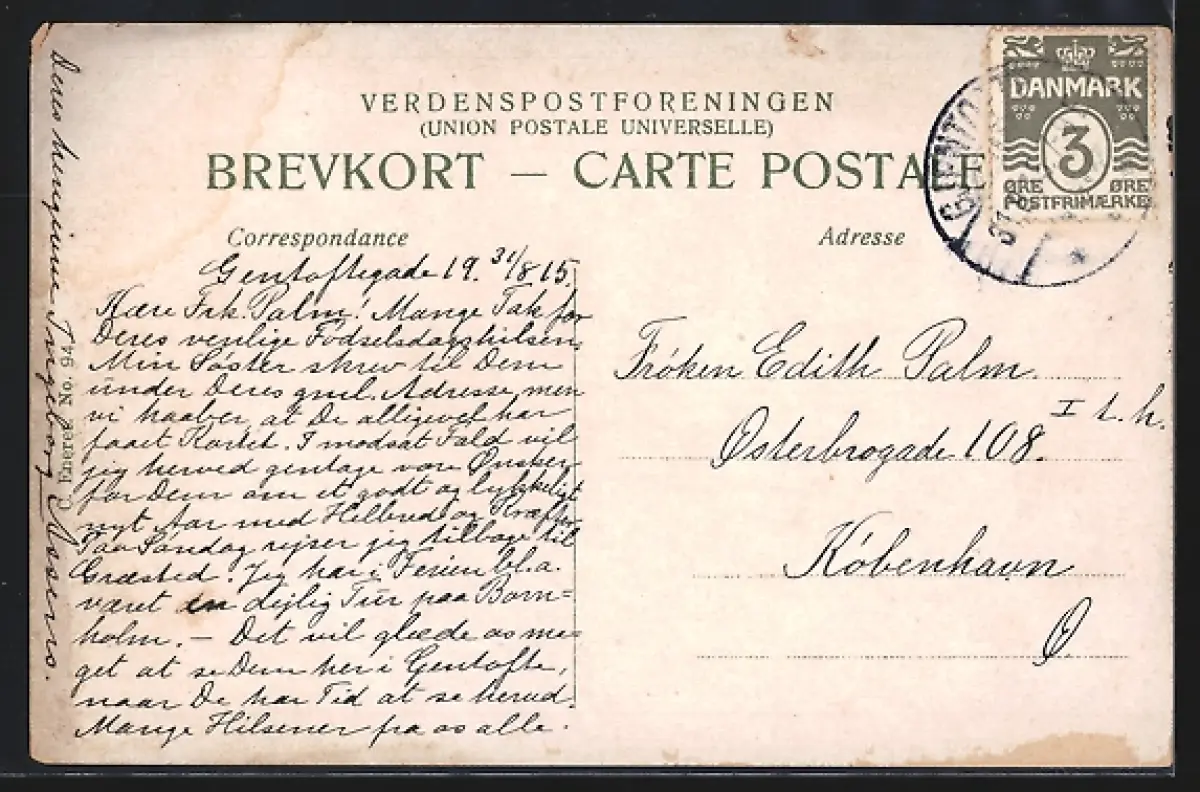 VERDENSPOSTFORENINGEN
(UNION POSTALE UNIVERSELLE)
BREVKORT — CARTE POSTALE
DANMARK
3
ØRE ØRE
POSTFRIMÆRKE
GENTO
31
Correspondance
Adresse
Gentoftegade 19. 31/8 15.
Kære Frk. Palm! Mange Tak for
Deres venlige Fødselsdagshilsen.
Min Søster skrev til Dem
under Deres gml. Adresse, men
vi haaber, at De alligevel har
faaet Kortet. I modsat Fald vil
jeg herved gentage vore Ønsker
for Dem om et godt og lykkeligt
nyt Aar med Helbred og Kræfter.
Paa Søndag rejser jeg tilbage til
Græsted. Jeg har i Ferien bl.a.
været en dejlig Tur paa Born=
holm. — Det vil glæde os me=
get at se Dem her i Gentofte,
naar De har Tid at se herud.
Mange Hilsener fra os alle.
Deres hengivne Ingeborg
C. Eneret No. 94
Frøken Edith Palm.
Østerbrogade 108. I t. h.
København
Ø